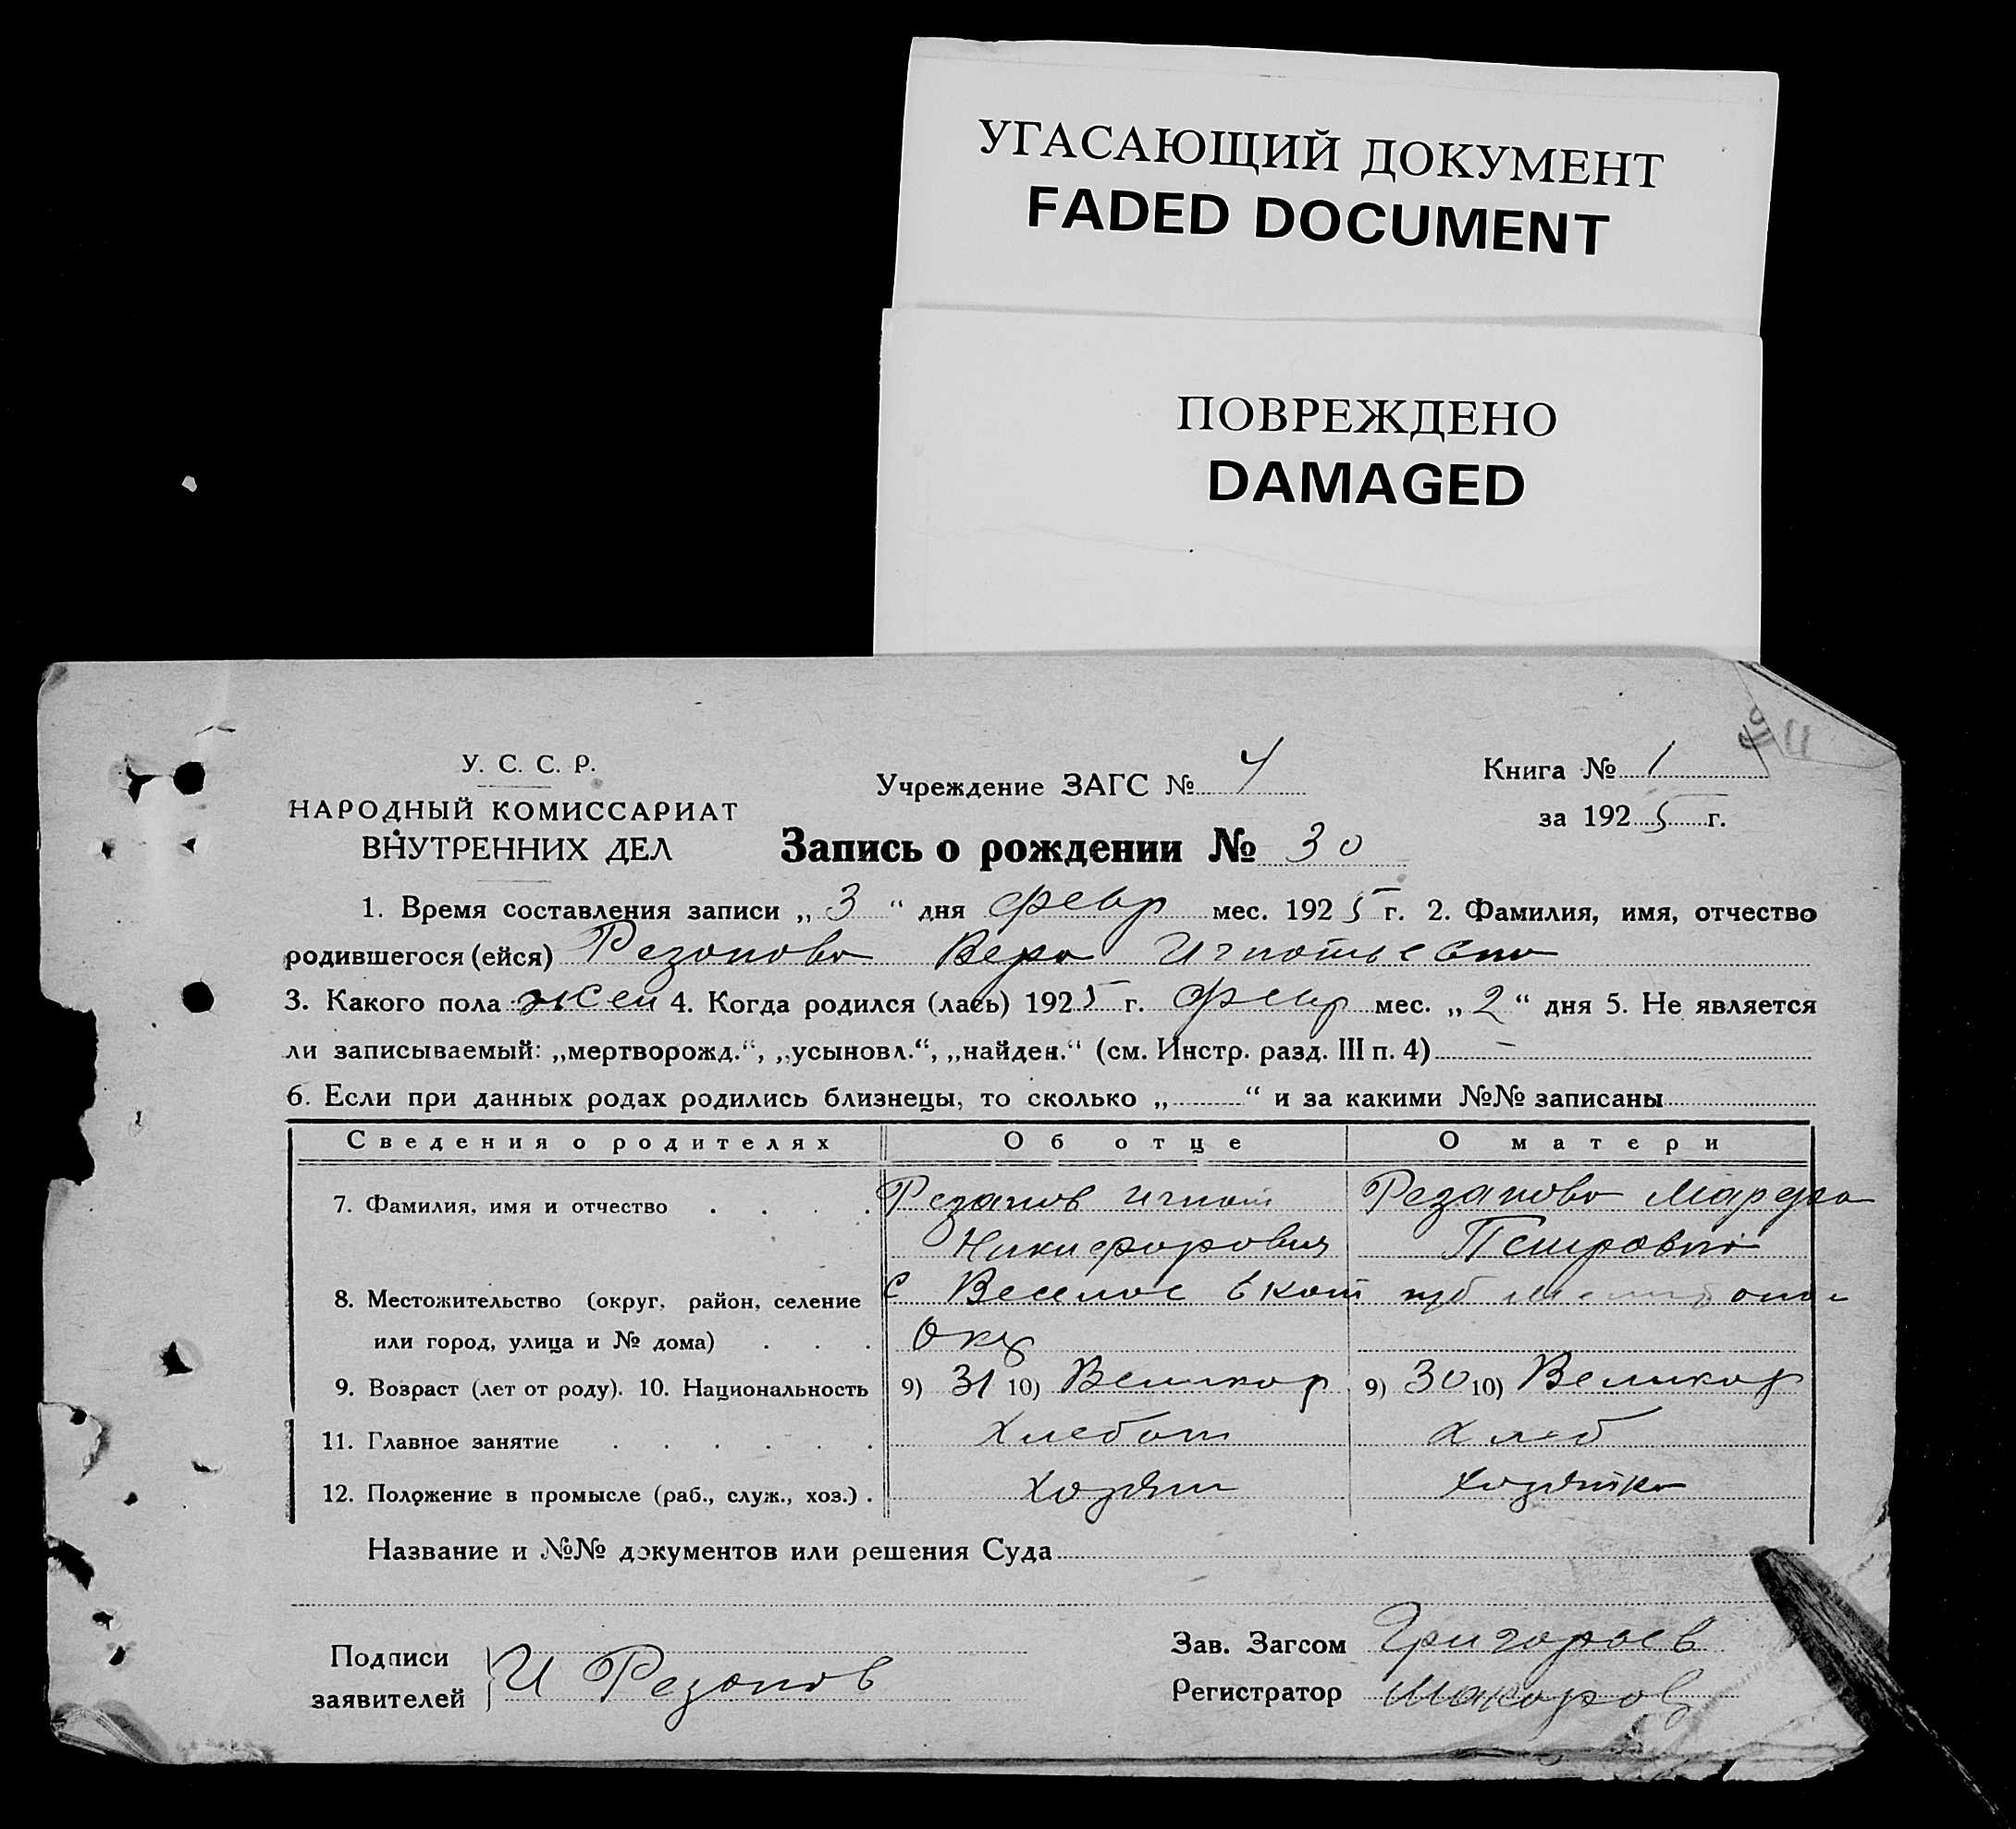 УГАСАЮЩИЙ ДОКУМЕНТ
FADED DOCUMENT
ПОВРЕЖДЕНО
DAMAGED
У. С. С. Р.
НАРОДНЫЙ КОМИССАРИАТ
ВНУТРЕННИХ ДЕЛ
Учреждение ЗАГС № 4
Книга № 1
за 1925 г.
Запись о рождении № 30
1. Время составления записи „3“ дня февр мес. 1925 г. 2. Фамилия, имя, отчество
родившегося (ейся) Резанова Вера Игнатьевна
3. Какого пола жен 4. Когда родился (лась) 1925 г. февр мес. „2“ дня 5. Не является
ли записываемый: „мертворожд.“, „усыновл.“, „найден.“ (см. Инстр. разд. III п. 4) –
6. Если при данных родах родились близнецы, то сколько „ “ и за какими №№ записаны
Сведения о родителях Об отце О матери
7. Фамилия, имя и отчество Резанов Игнат Резанова Марфа
Никифорович Петровна
8. Местожительство (округ, район, селение с Веселое
или город, улица и № дома) Окр
9. Возраст (лет от роду). 10. Национальность 9) 31 10) Великор 9) 30 10) Великор
11. Главное занятие Хлебоп Хлеб
12. Положение в промысле (раб., служ., хоз.) Хозяин Хозяйка
Название и №№ документов или решения Суда
Подписи
заявителей И Резанов
Зав. Загсом Григорьев
Регистратор Макаров